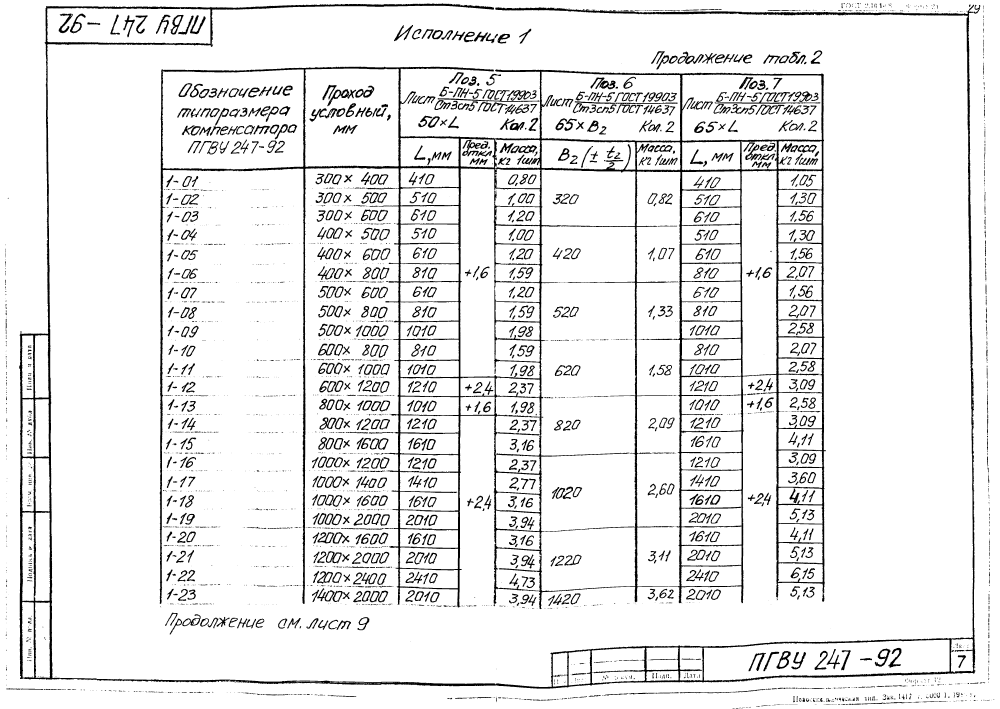 29
ПГВУ 247-92
Исполнение 1
Продолжение табл. 2
Обозначение типоразмера компенсатора ПГВУ 247-92
Проход условный, мм
Поз. 5
Лист Б-ПН-5 ГОСТ 19903
Ст3сп5 ГОСТ 14637
50×L Кол. 2
Поз. 6
Лист Б-ПН-5 ГОСТ 19903
Ст3сп5 ГОСТ 14637
65×B2 Кол. 2
Поз. 7
Лист Б-ПН-5 ГОСТ 19903
Ст3сп5 ГОСТ 14637
65×L Кол. 2
L, мм Пред. откл. мм Масса, кг 1шт B2 (± t2/2) Масса, кг 1шт L, мм Пред. откл. мм Масса, кг 1шт
1-01 300 × 400 410 0,80 410 1,05
1-02 300 × 500 510 1,00 320 0,82 510 1,30
1-03 300 × 600 610 1,20 610 1,56
1-04 400 × 500 510 1,00 510 1,30
1-05 400 × 600 610 1,20 420 1,07 610 1,56
1-06 400 × 800 810 +1,6 1,59 810 +1,6 2,07
1-07 500 × 600 610 1,20 610 1,56
1-08 500 × 800 810 1,59 520 1,33 810 2,07
1-09 500 × 1000 1010 1,98 1010 2,58
1-10 600 × 800 810 1,59 810 2,07
1-11 600 × 1000 1010 1,98 620 1,58 1010 2,58
1-12 600 × 1200 1210 +2,4 2,37 1210 +2,4 3,09
1-13 800 × 1000 1010 +1,6 1,98 1010 +1,6 2,58
1-14 800 × 1200 1210 2,37 820 2,09 1210 3,09
1-15 800 × 1600 1610 3,16 1610 4,11
1-16 1000 × 1200 1210 2,37 1210 3,09
1-17 1000 × 1400 1410 2,77 1020 2,60 1410 3,60
1-18 1000 × 1600 1610 +2,4 3,16 1610 +2,4 4,11
1-19 1000 × 2000 2010 3,94 2010 5,13
1-20 1200 × 1600 1610 3,16 1610 4,11
1-21 1200 × 2000 2010 3,94 1220 3,11 2010 5,13
1-22 1200 × 2400 2410 4,73 2410 6,15
1-23 1400 × 2000 2010 3,94 1420 3,62 2010 5,13
Продолжение см. лист 9
ПГВУ 247-92
7
Подп.
Дата